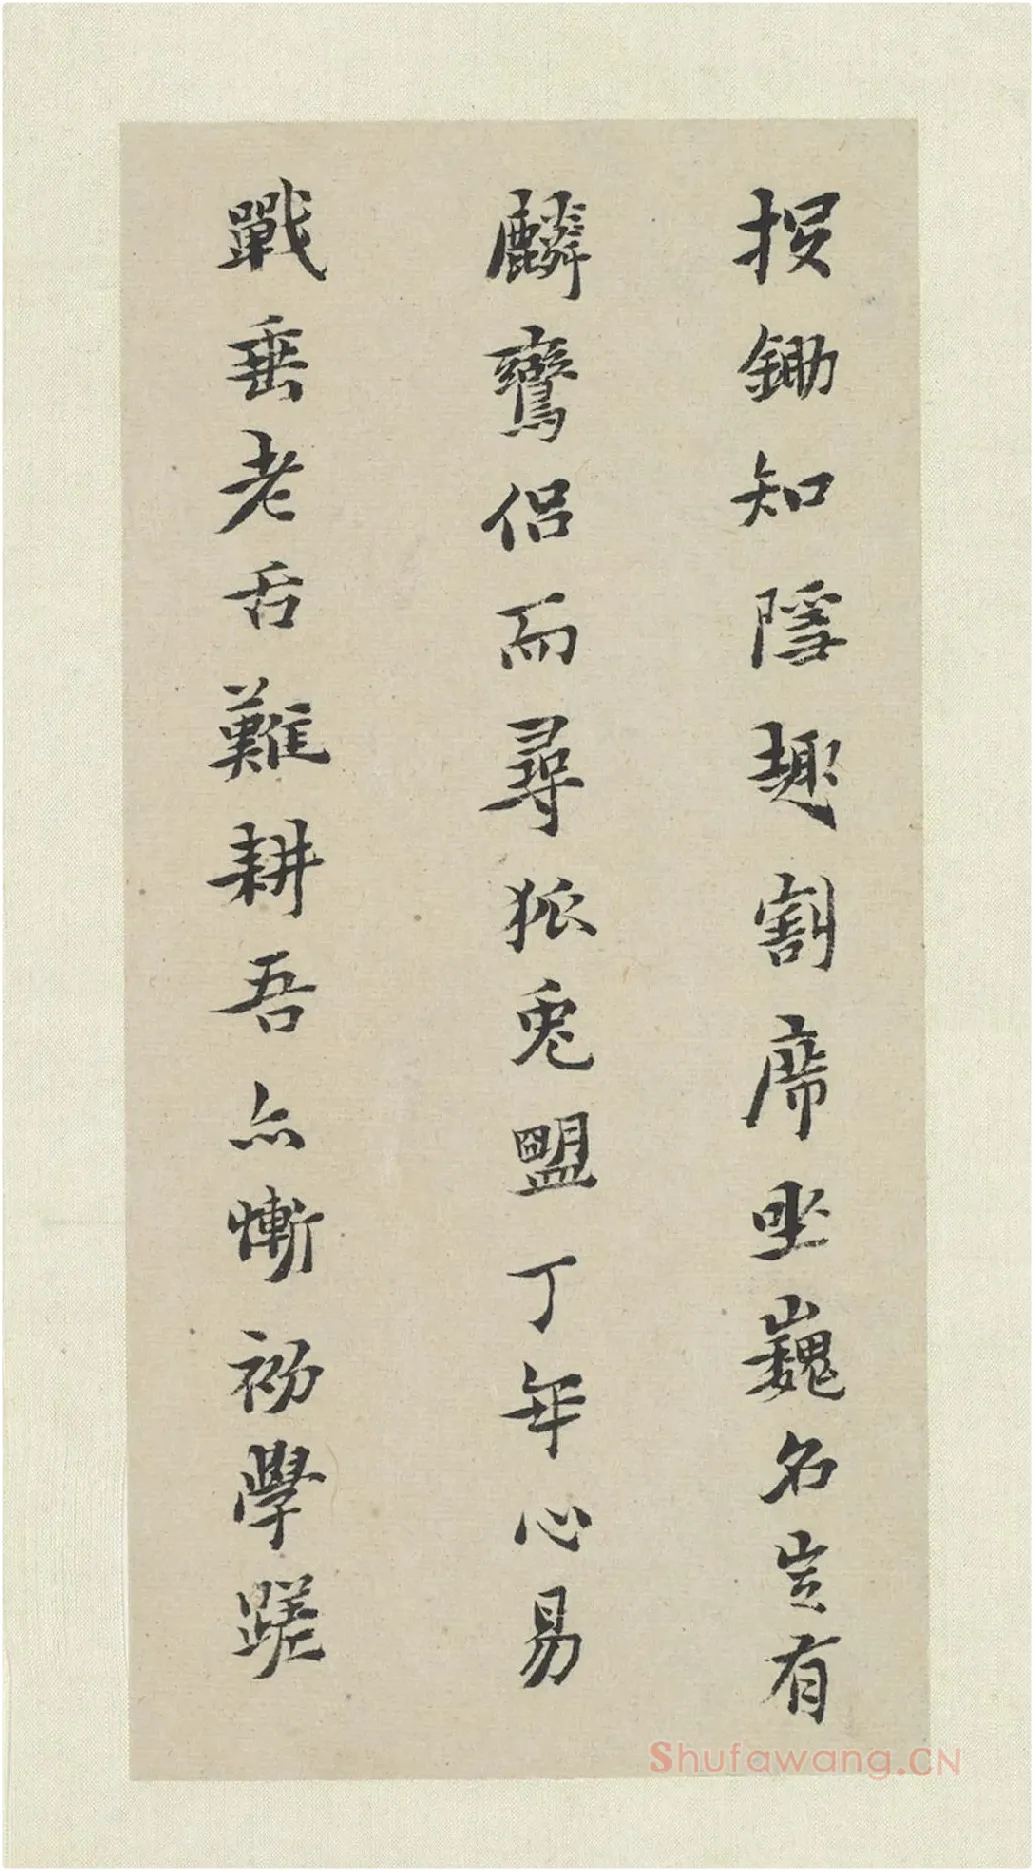 投鋤知隱趣割席坐巍名豈有
麟鸞侶而尋狐兔盟丁年心易
戰垂老舌難耕吾亦慚初學蹉
Shufawang.CN